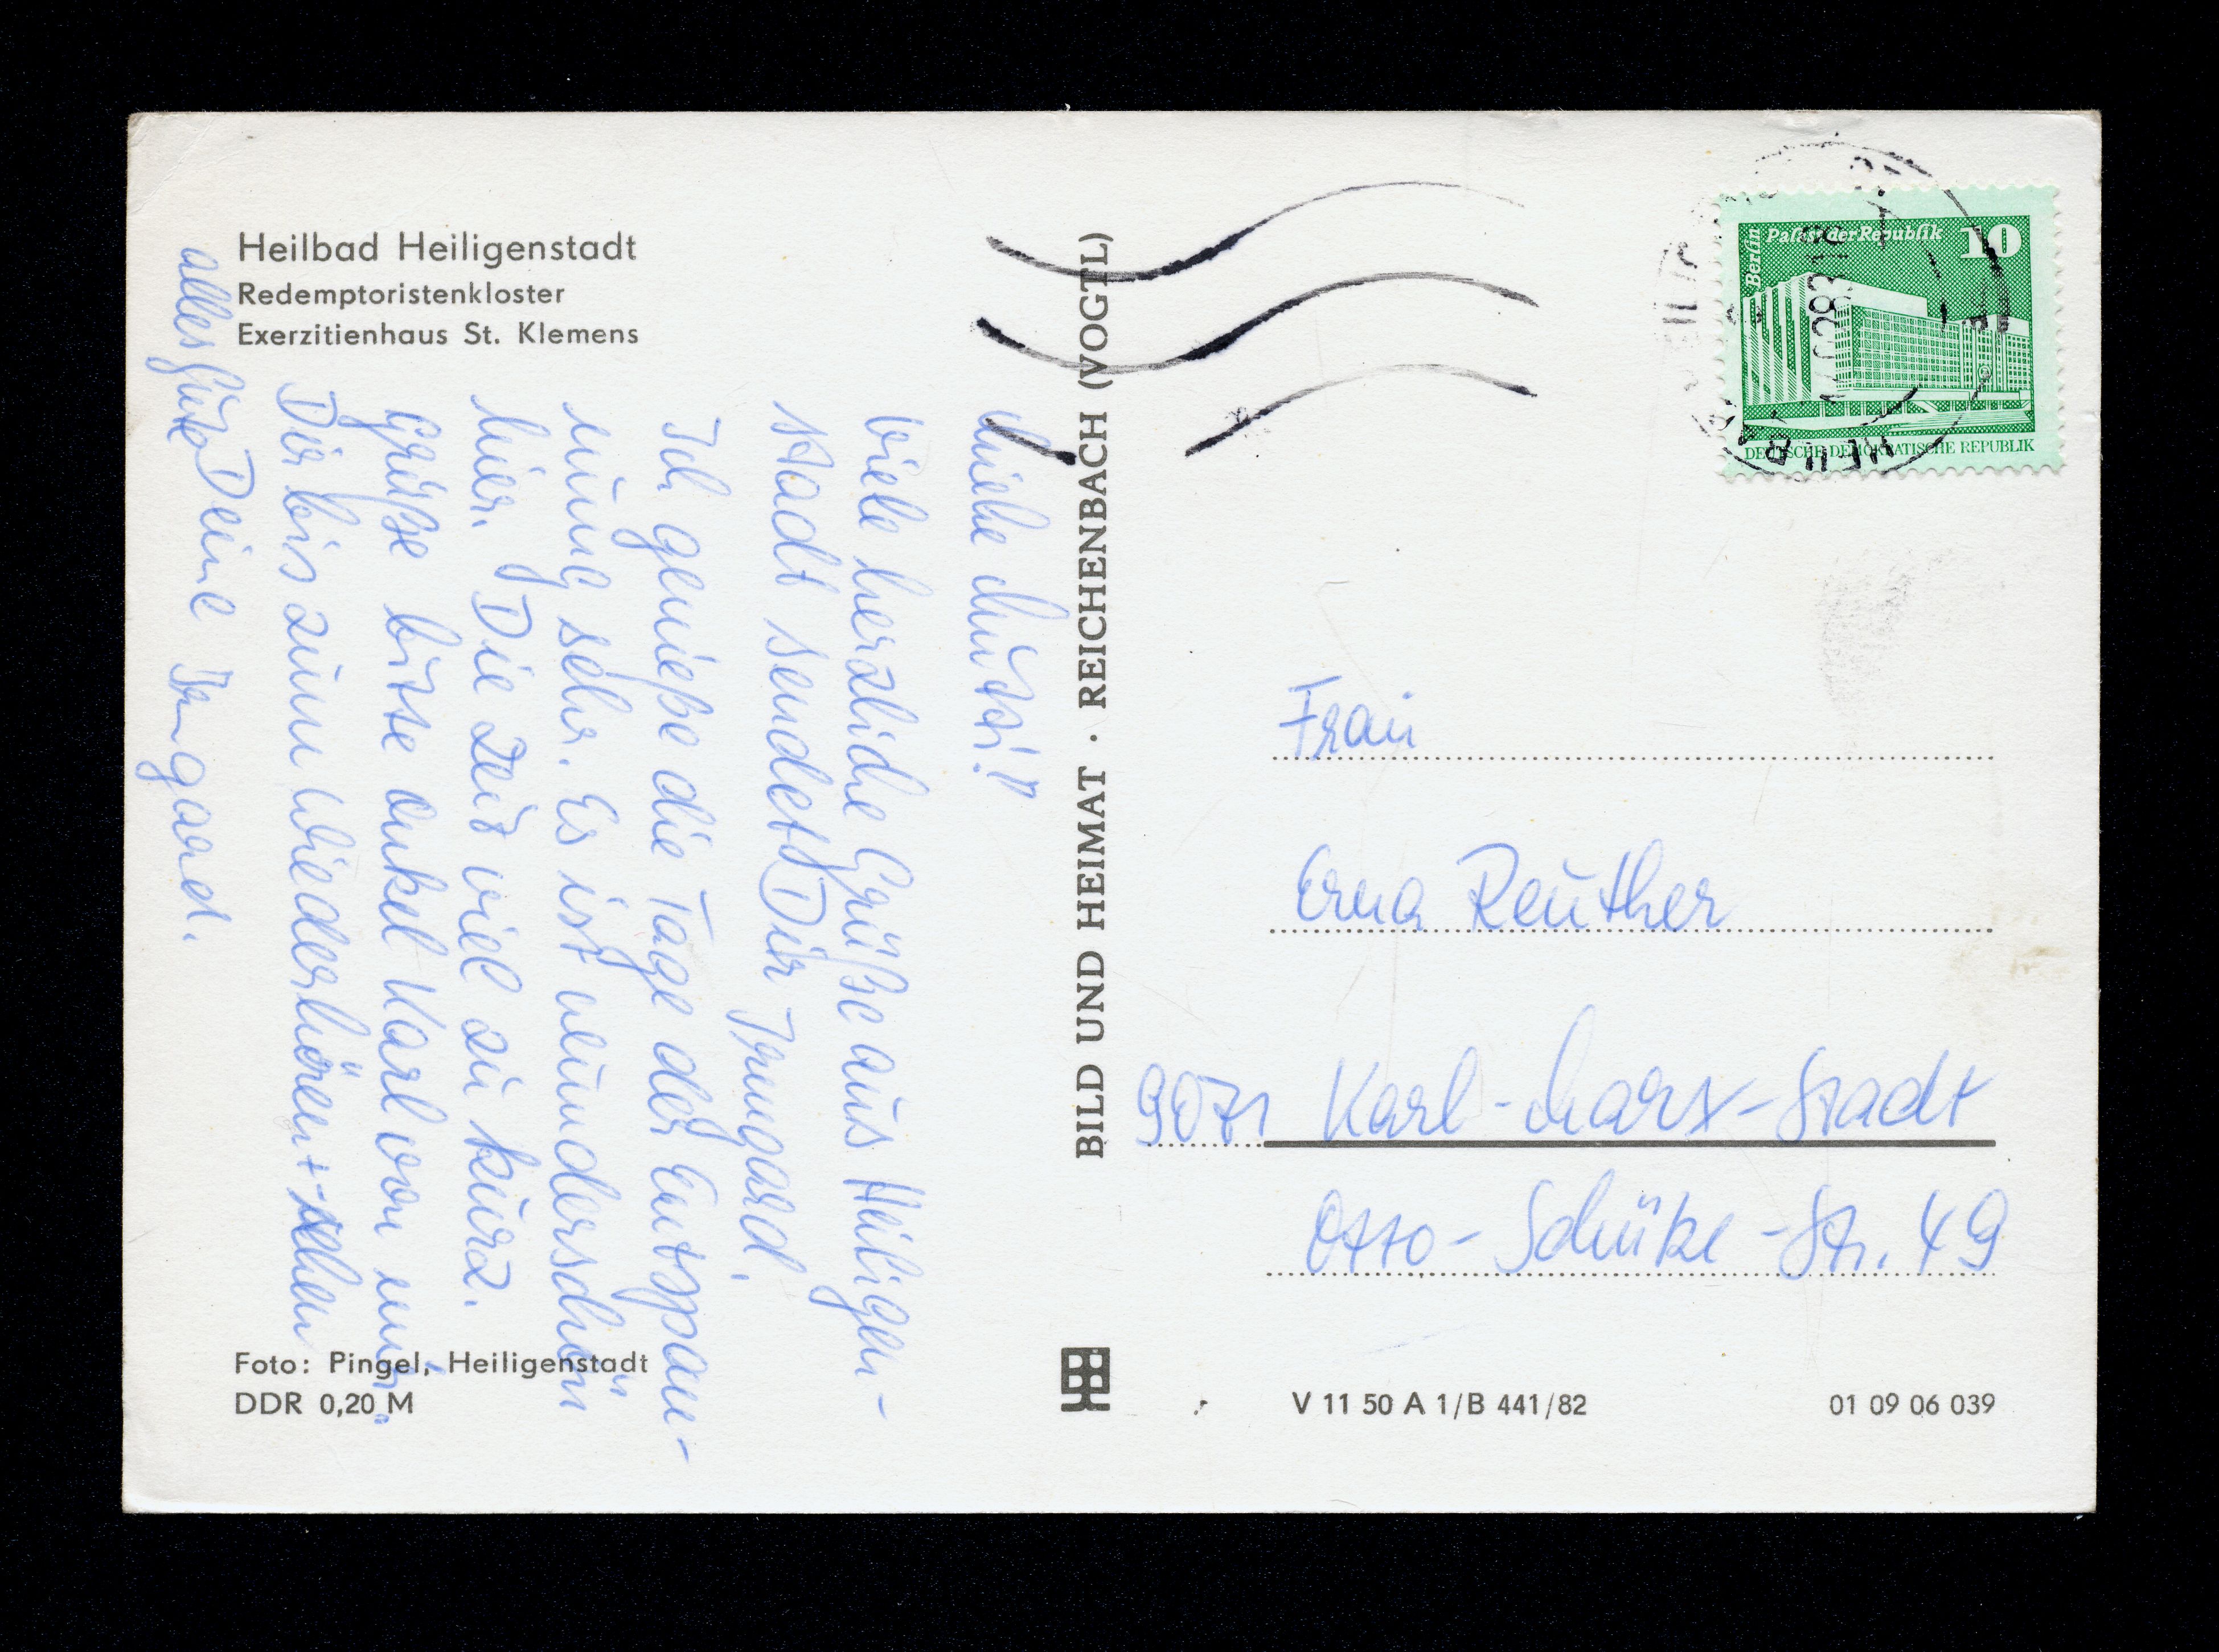 Heilbad Heiligenstadt
Redemptoristenkloster
Exerzitienhaus St. Klemens
Mutti!
viele herzliche Grüße aus Heiligen-
stadt sendet Dir Irmgard.
Ich genieße die Tage der Entspan-
nung sehr. Es ist wunderschön
hier. Die Zeit viel zu kurz.
Grüße bitte Onkel Karl von mir.
Dir bis zum Wiederhören + -sehen
alles Gute Deine Irmgard.
Foto: Pingel, Heiligenstadt
DDR 0,20 M
BILD UND HEIMAT · REICHENBACH (VOGTL)
Berlin
Palast der Republik
10
DEUTSCHE DEMOKRATISCHE REPUBLIK
Frau
Erna Reuther
9071 Karl-Marx-Stadt
Otto-Schütze-Str. 49
V 11 50 A 1/B 441/82
01 09 06 039